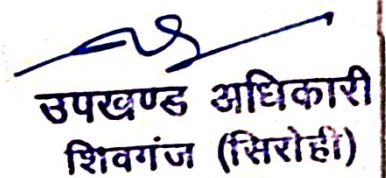 उपखण्ड अधिकारी
शिवगंज (सिरोही)